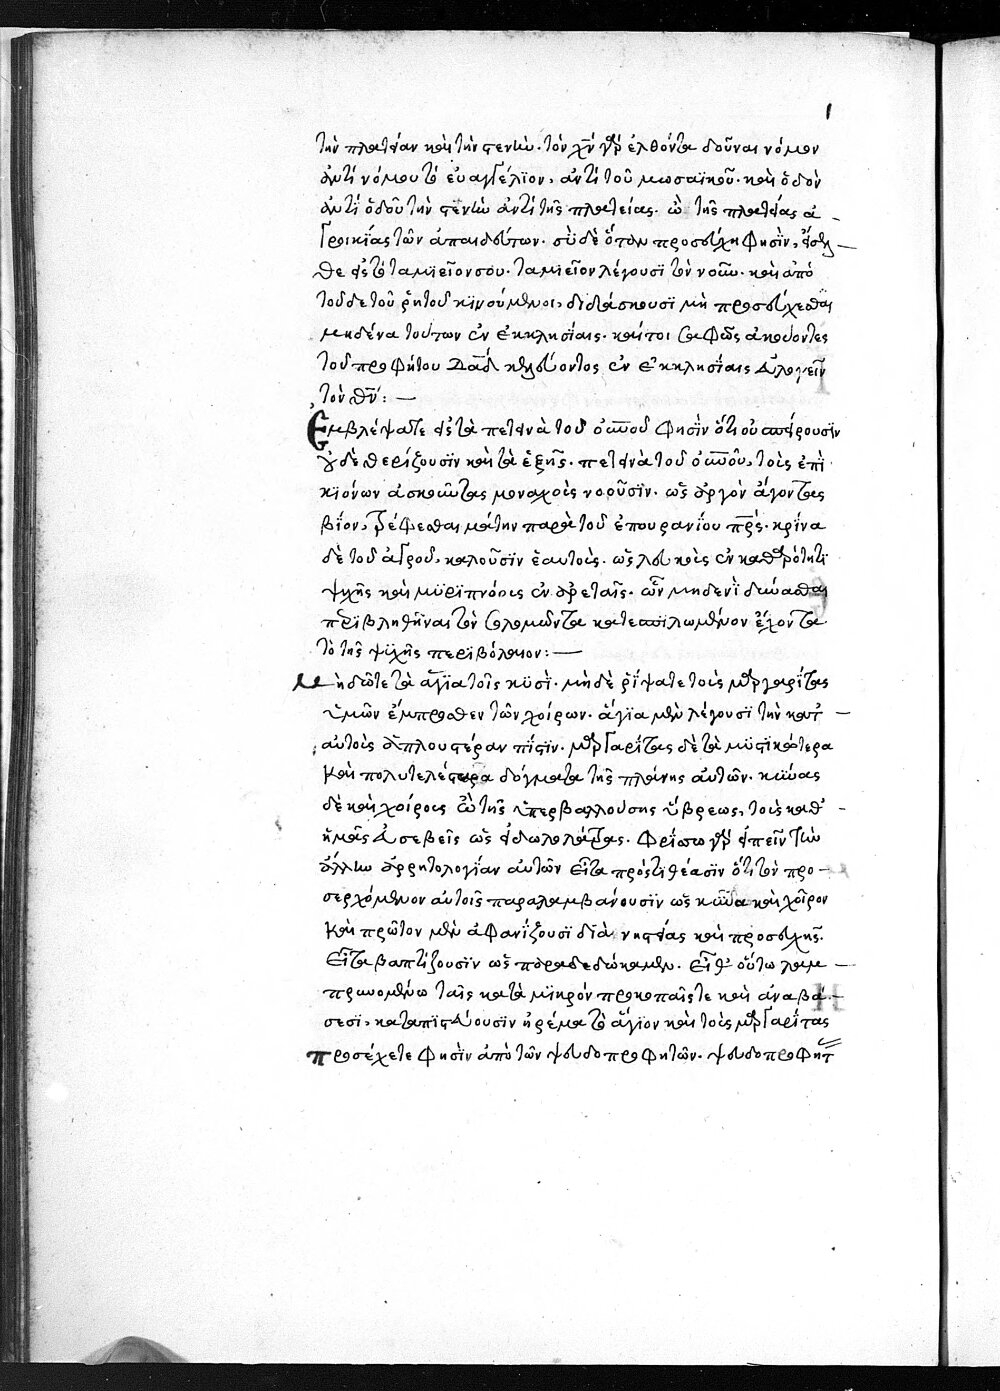 τὴν πλατεῖαν καὶ τὴν στενὴν. τὸν χν γὰρ ἐλθόντα δοῦναι νόμον
ἀντὶ νόμου τὸ εὐαγγέλϊον, ἀντὶ τοῦ μωσαϊκοῦ. καὶ ὁδὸν
ἀντὶ ὁδοῦ τὴν στενὴν ἀντὶ τῆς πλατείας. ὢ τῆς πλατείας ἀ
γροικΐας τῶν ἀπαιδεύτων. σὺ δὲ ὅταν προσεύχη φησὶν, εἴσελ
θε εἰς τὸ ταμιεῖόν σου. ταμιεῖον λέγουσϊ τὸν νοῦν. καὶ ἀπὸ
τοῦδε τοῦ ῥητοῦ κινούμενοι, διδάσκουσϊ μὴ προσεύχεσθαι
μηδένα τούτων ἐν ἐκκλησΐαις. καίτοι σαφῶς ἀκούοντες
τοῦ προφήτου Δαδ κελεύοντος ἐν ἐκκλησΐαις εὐλογεῖν
τὸν θν: —
Ἐμβλέψατε εἰς τὰ πετεινὰ τοῦ οὐνοῦ φησὶν ὅτι οὐ σπείρουσϊν
οὐδὲ θερίζουσϊν καὶ τὰ ἑξῆς. πετεινὰ τοῦ οὐνοῦ, τοὺς ἐπὶ
κιόνων ἀσκοῦντας μοναχοὺς νοοῦσϊν. ὡς ἀργὸν ἄγοντας
βΐον, τρέφεσθαι μάτην παρὰ τοῦ ἐπουρανΐου πρς. κρίνα
δὲ τοῦ ἀγροῦ, καλοῦσϊν ἑαυτοὺς. ὡς λευκοὺς ἐν καθαρότητι
ψυχῆς καὶ μϋρϊπνόους ἐν ἀρεταῖς. ὧν μηδενὶ δύνασθαι
παραβληθῆναι τὸν σολομῶντα κατεσπιλωμένον ἔχοντα
τὸ τῆς ψυχῆς περιβόλαιον: —
Μὴ δῶτε τὰ ἅγια τοῖς κϋσὶ. μὴ δὲ ῥΐψατε τοὺς μαργαρΐτας
ὑμῶν ἔμπροσθεν τῶν χοίρων. ἅγϊα μὲν λέγουσϊ τὴν κατ
αὐτοὺς ἁπλουστέραν πΐστϊν. μαργαρΐτας δὲ τὰ μϋστικώτερα
καὶ πολυτελέστερα δόγματα τῆς πλάνης αὐτῶν. κύνας
δὲ καὶ χοίρους ὢ τῆς ὑπερβαλλούσης ὕβρεως, τοὺς καθ
ἡμᾶς εὐσεβεῖς ὡς εἰδωλολάτρας. φρίττω γὰρ εἰπεῖν τὴν
ἄλλην ἀρρητολογΐαν αὐτῶν εἶτα προστιθέασϊν ὅτι τὸν προ
σερχόμενον αὐτοῖς παραλαμβάνουσϊν ὡς κύνα καὶ χοῖρον
καὶ πρῶτον μὲν ἀφανΐζουσϊ διὰ νηστείας καὶ προσευχῆς.
εἶτα βαπτΐζουσϊν ὡς παραδεδώκαμεν. εἶθ' οὕτω λαμ
πρυνομένω ταῖς κατὰ μϊκρὸν προκοπαῖς τε καὶ ἀναβά
σεσϊ, καταπϊστεύουσϊν ἠρέμα τὸ ἅγϊον καὶ τοὺς μαργαρΐτας
προσέχετε φησὶν ἀπὸ τῶν ψευδοπροφητῶν. ψευδοπροφητ